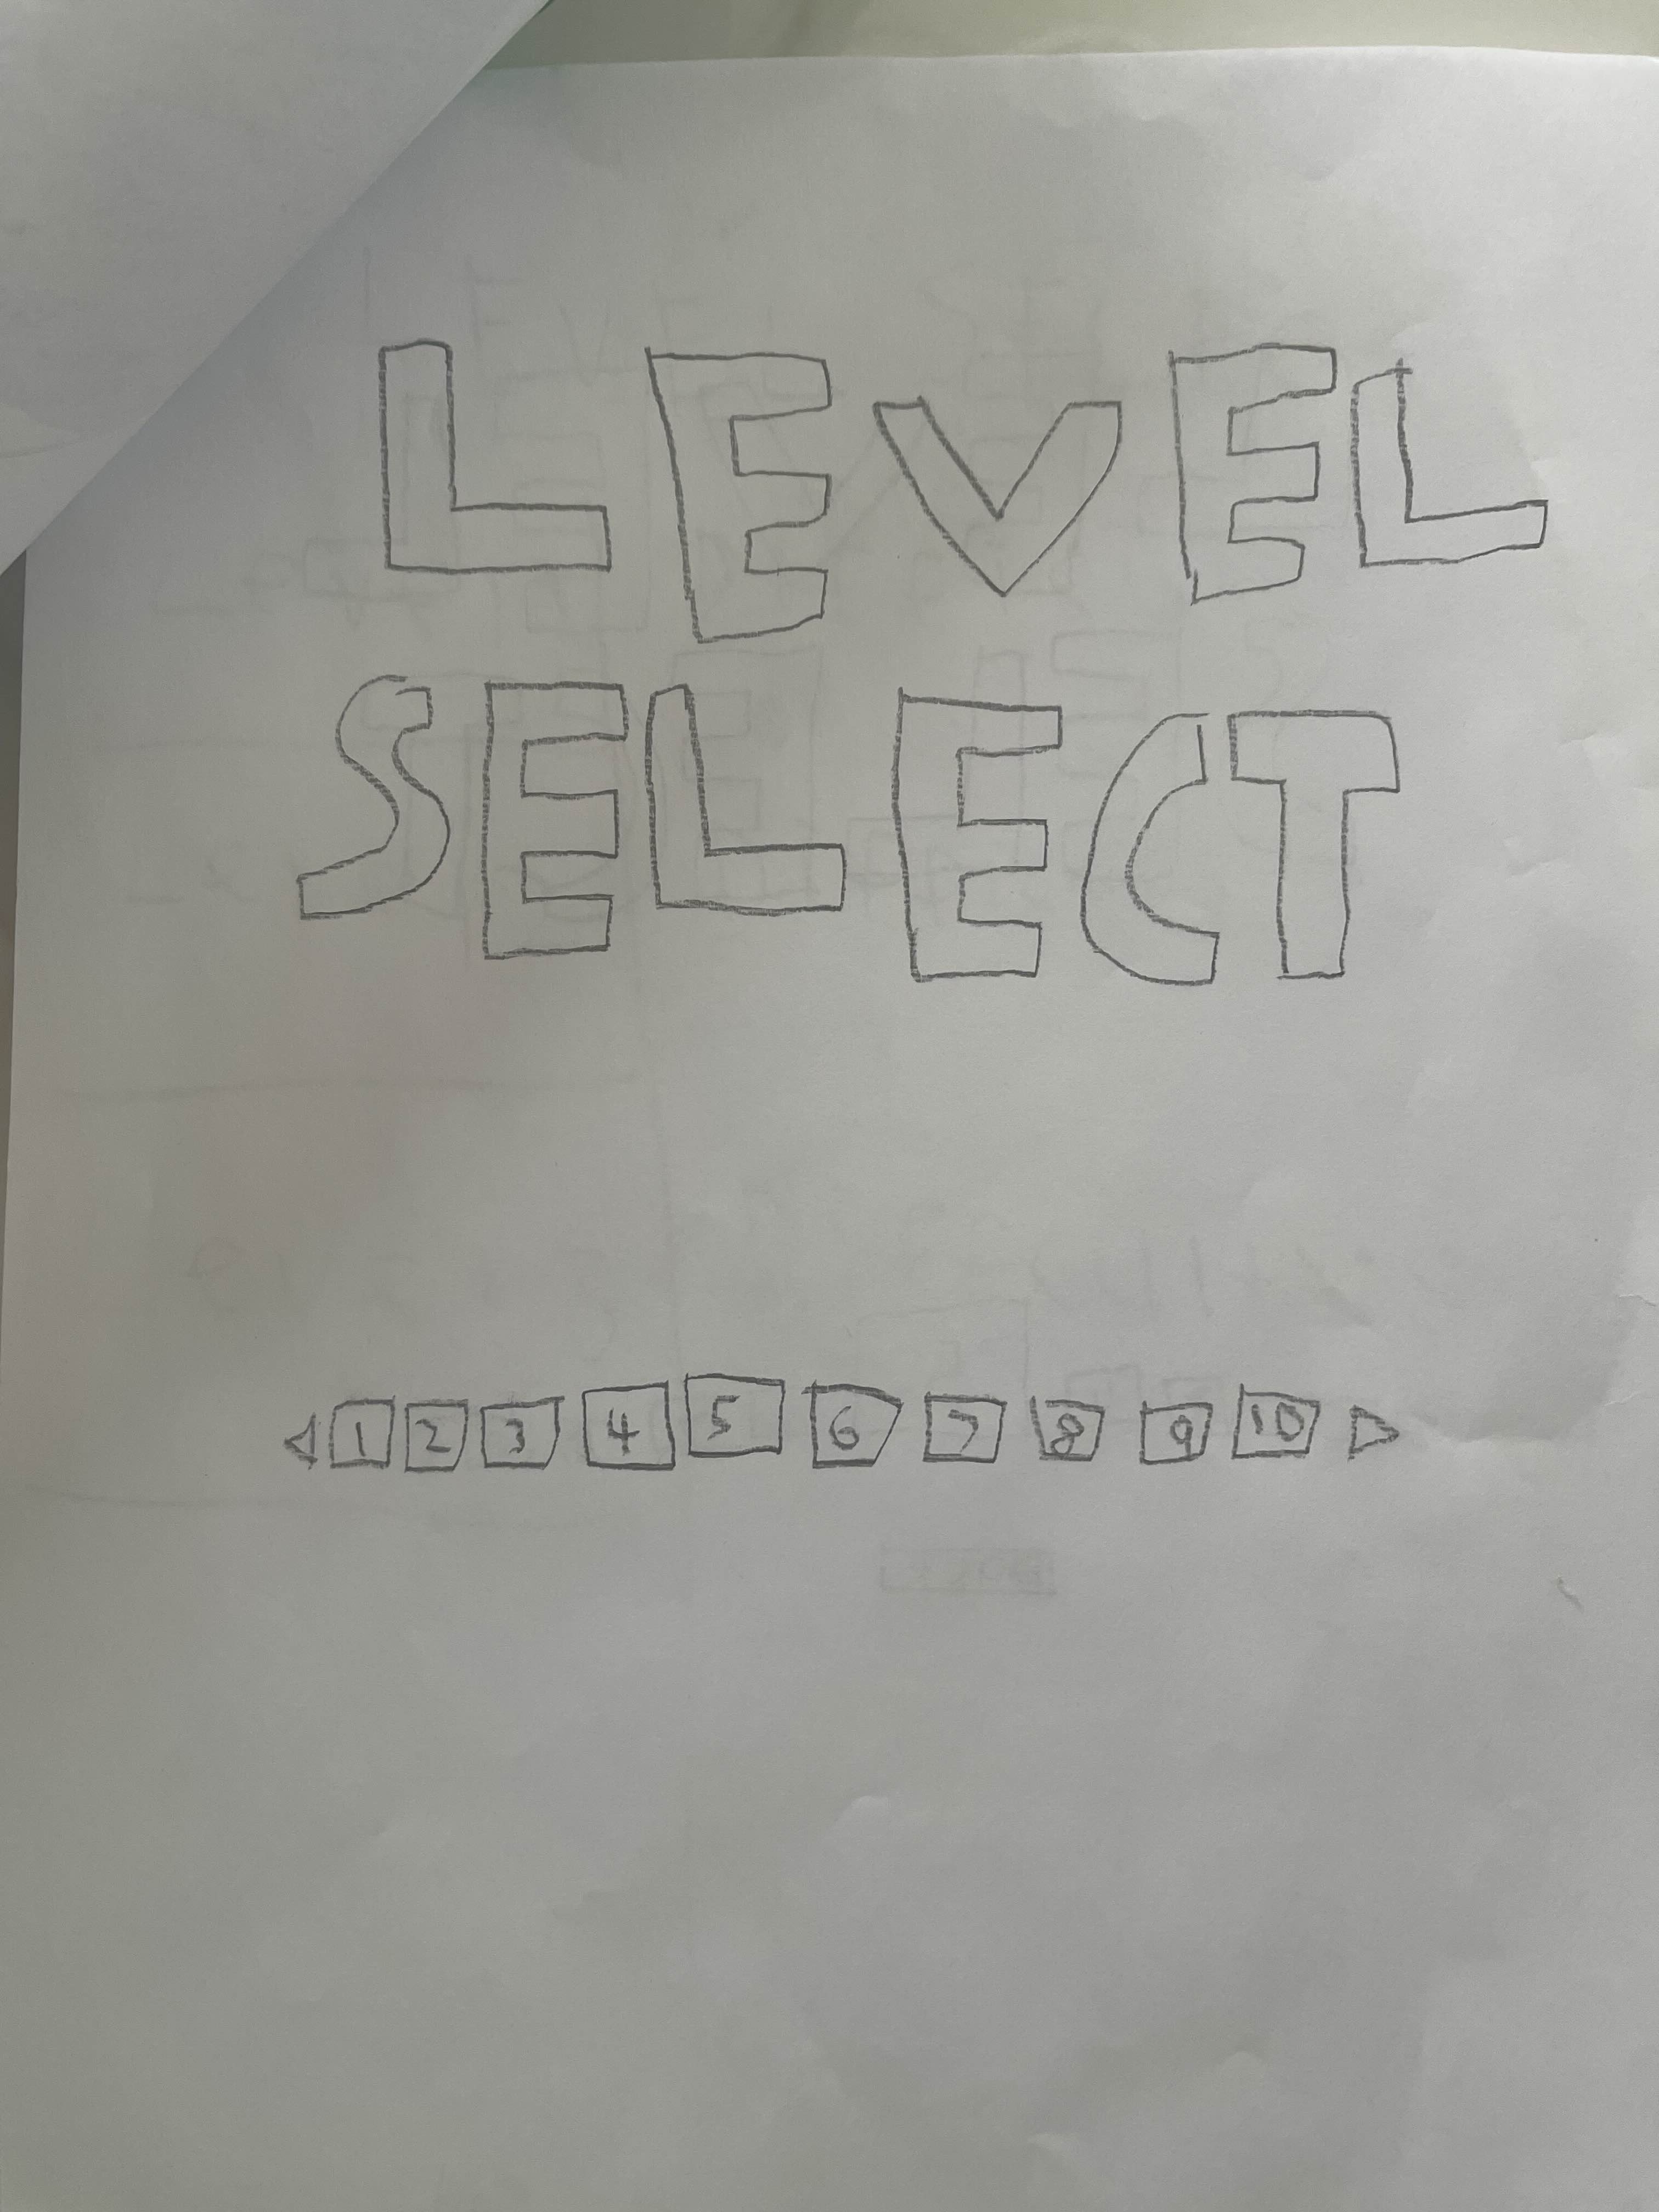 LEVEL
SELECT
1 2 3 4 5 6 7 8 9 10